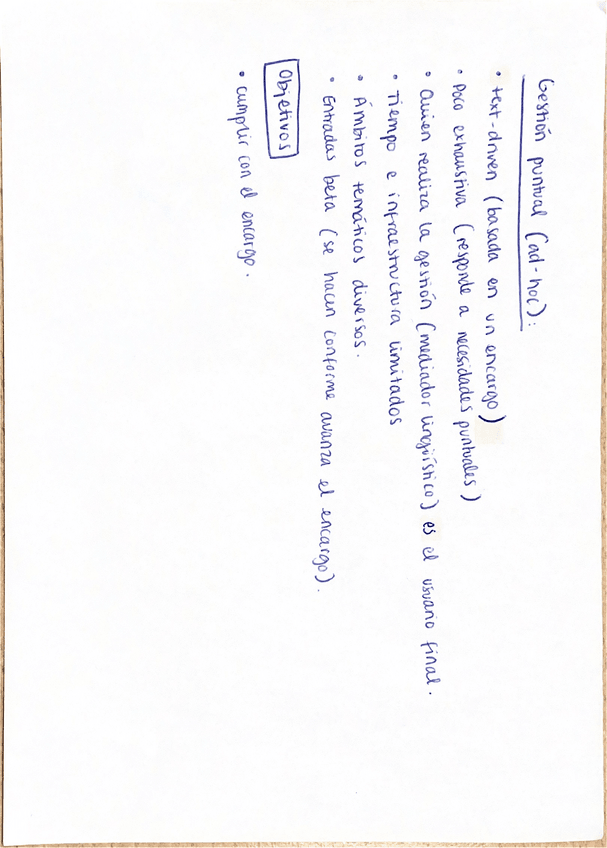 Gestión puntual (ad-hoc):
• text-driven (basada en un encargo)
• Poco exhaustiva (responde a necesidades puntuales)
• Quien realiza la gestión (mediador lingüístico) es el usuario final.
• Tiempo e infraestructura limitados
• Ámbitos temáticos diversos.
• Entradas beta (se hacen conforme avanza el encargo).
Objetivos
• cumplir con el encargo.